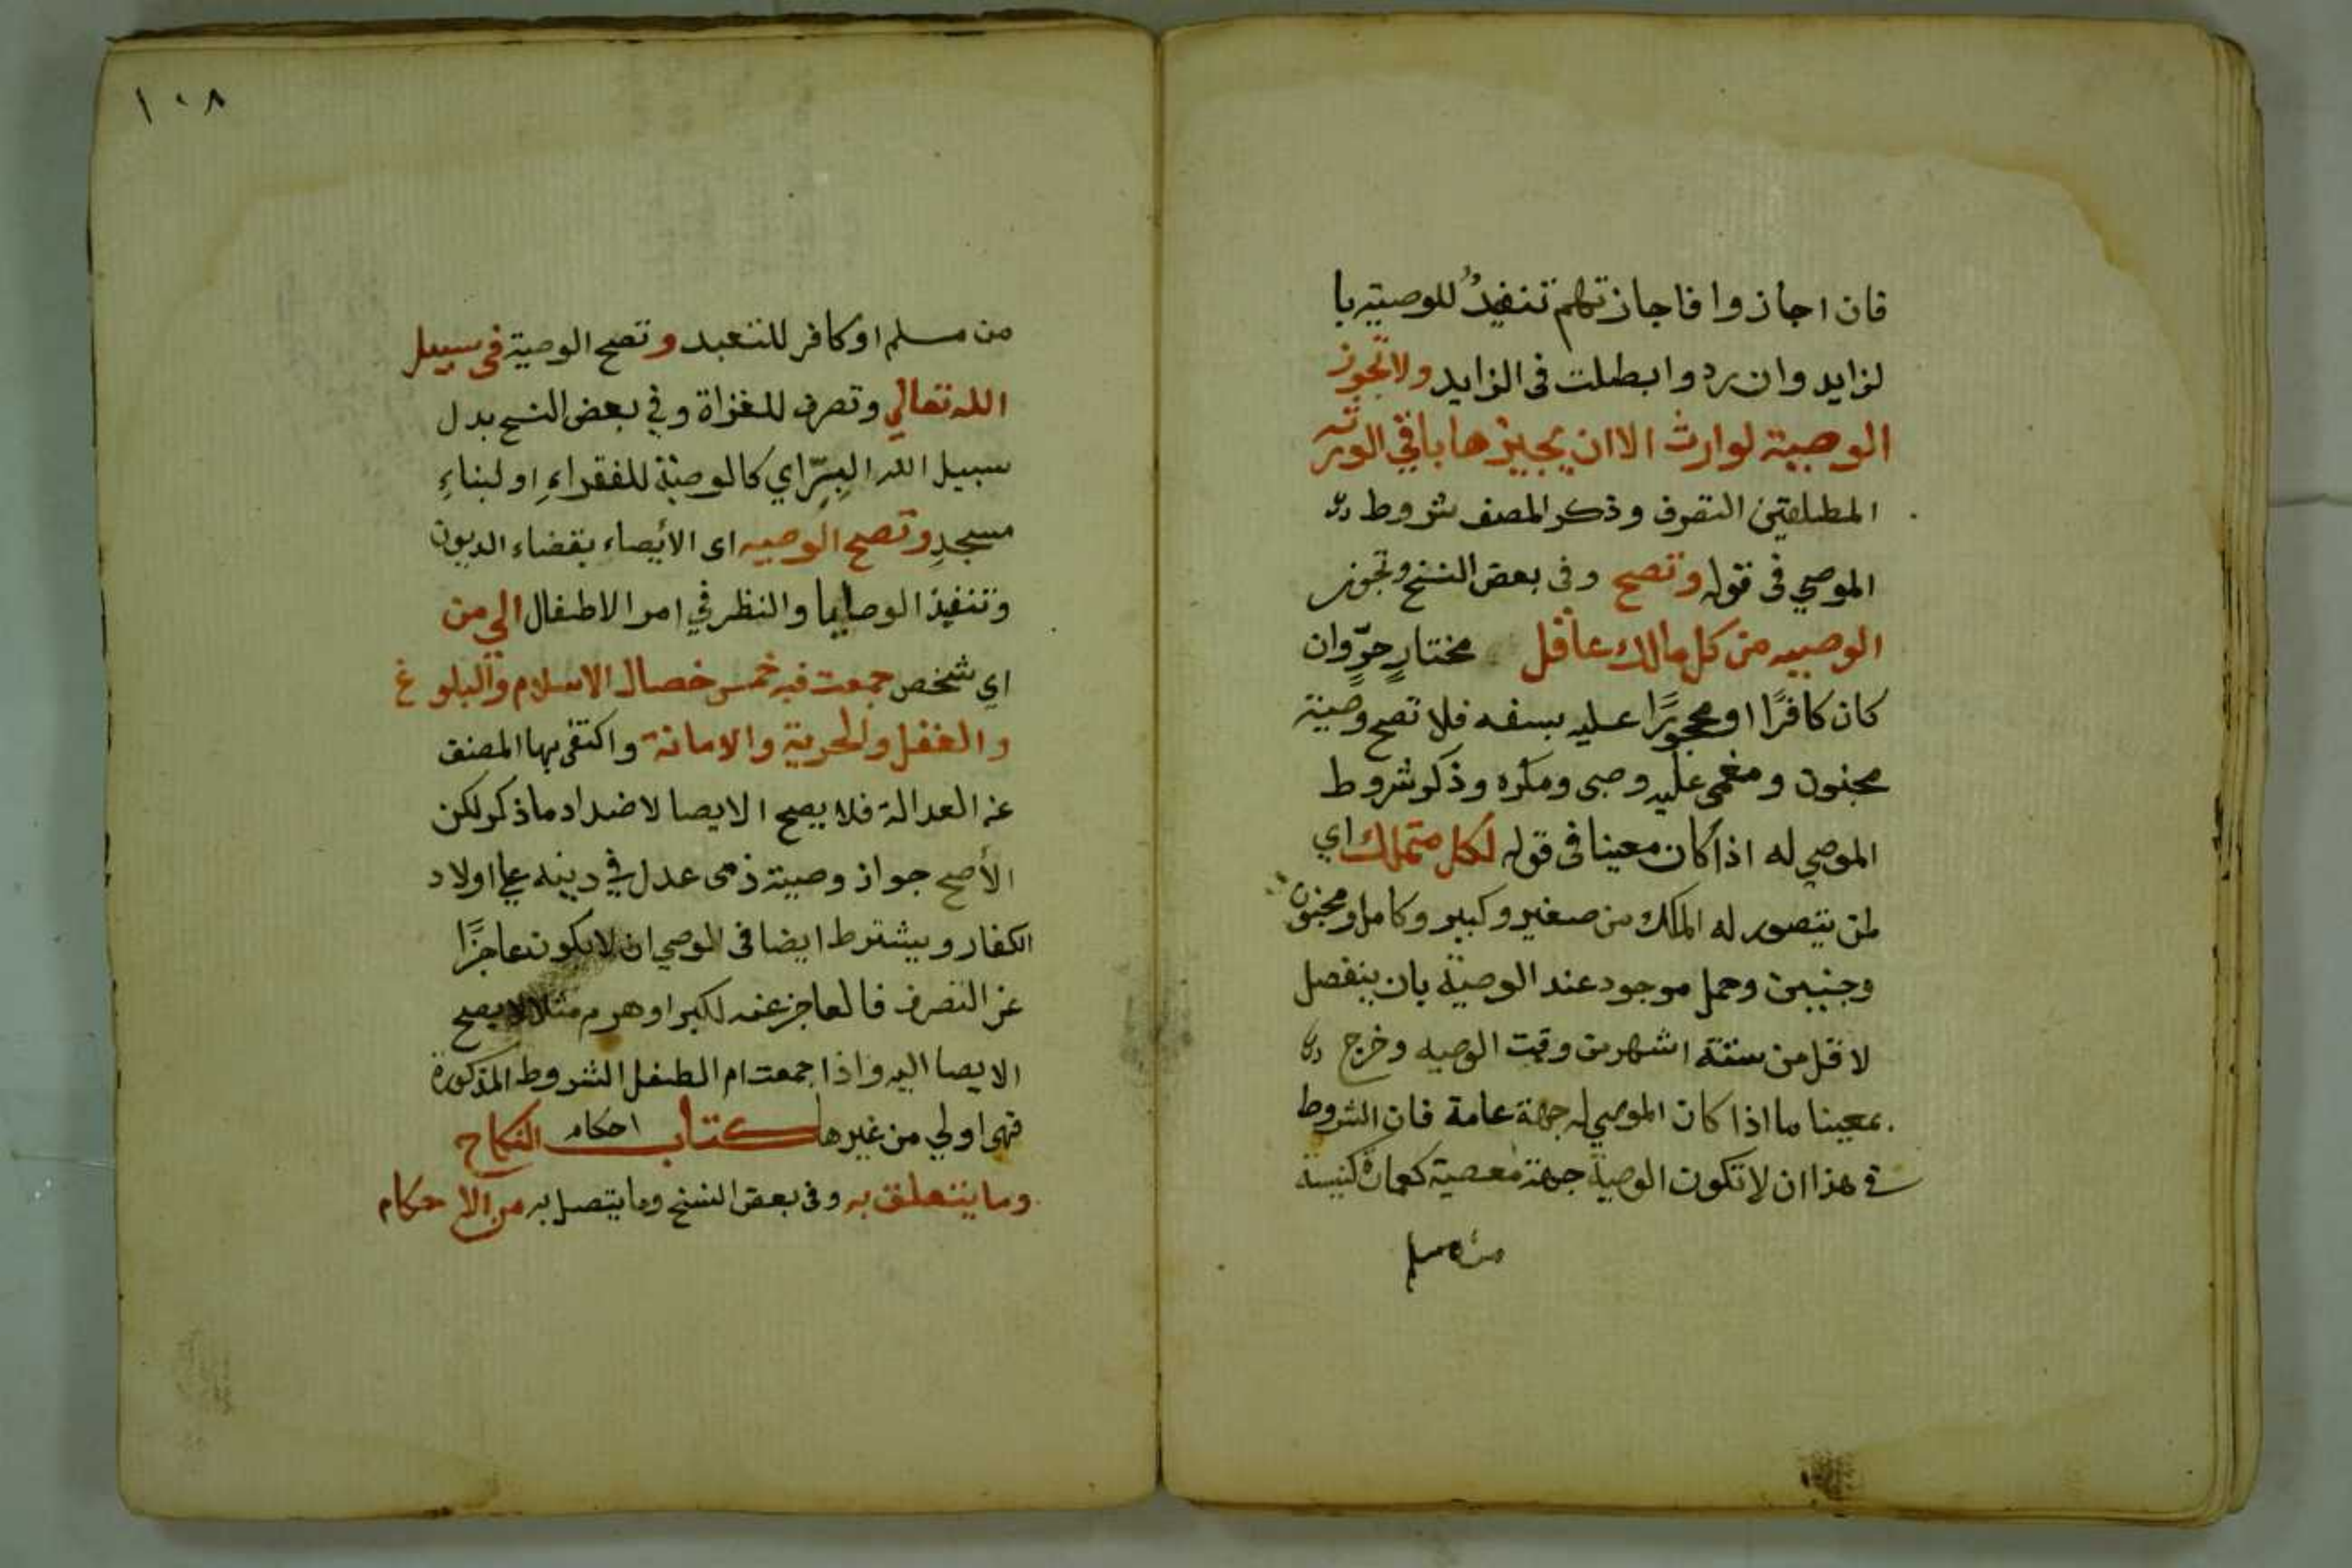 فان اجازوا فاجازتهم تنفيذٌ للوصية با
لزايد وان ردوا بطلت في الزايد ولا تجوز
الوصية لوارث الا ان يجيزها باقي الورثة
المطلقين التصرف وذكر المصنف شروط
الموصي في قوله وتصح وفي بعض النسخ وتجوز
الوصيه من كل مالك عاقل مختارٍ حرٍّ وان
كان كافرًا او محجورًا عليه بسفه فلا تصح وصية
مجنون ومغمى عليه وصبى ومكره وذكر شروط
الموصي له اذا كان معينا في قوله لكل متملك اي
لمن يتصور له الملك من صغير وكبير وكامل ومجنون
وجنين وحمل موجود عند الوصية بان ينفصل
لاقل من ستة اشهر من وقت الوصيه وخرج
بمعينا ما اذا كان الموصي له جهة عامة فان الشروط
في هذا ان لا تكون الوصية جهة معصية كعمارة كنيسة
من مسلم
١٠٨
من مسلم او كافر للتعبد وتصح الوصية في سبيل
الله تعالي وتصرف للغزاة وفي بعض النسخ بدل
سبيل الله البِرِّ اي كالوصية للفقراءِ او لبناءِ
مسجدٍ وتصح الوصيه اى الأيصاء بقضاء الديون
وتنفيذ الوصايا والنظر في امر الاطفال الي من
اي شخص جمعت فيه خمس خصال الاسلام والبلوغ
والعقل والحرية والامانة واكتفى بها المصنف
عن العدالة فلا يصح الايصا لاضداد ما ذكر لكن
الأصح جواز وصية ذمى عدل في دينه علي اولاد
الكفار ويشترط ايضا في الموصي ان لا يكون عاجزًا
عن التصرف فالعاجز عنه لكبر او هرم مثلا لا يصح
الايصا اليه واذا جمعت ام الطفل الشروط المذكورة
فهى اولي من غيرها كتاب احكام النكاح
وما يتعلق به وفي بعض النسخ وما يتصل به من الاحكام